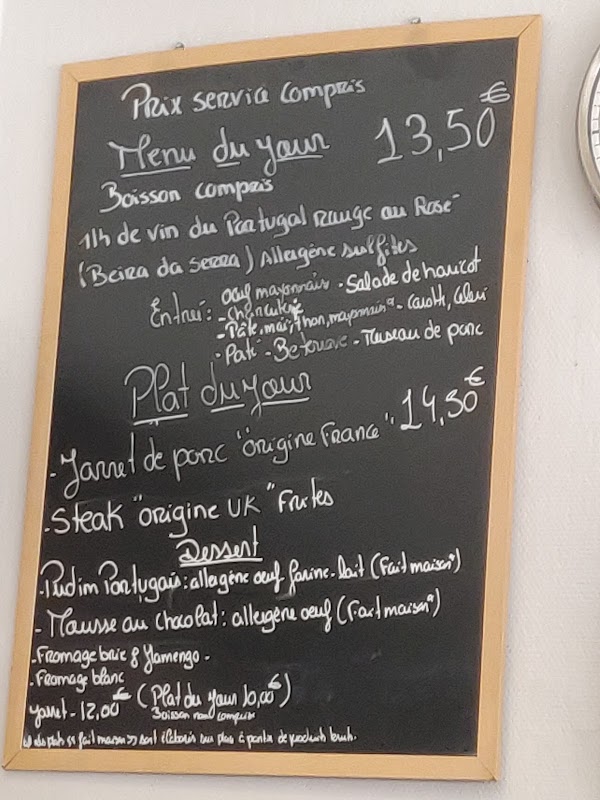 Prix service compris
Menu du jour 13,50€
Boisson compris
1/4 de vin du Portugal rouge ou Rosé
(Beira da Serra) Allergène sulfites
Entreé: Oeuf mayonnais - Salade de haricot
- Charcuterie
- Pâte, maïs, thon, mayonnais - Carotte, Celeri
- Paté - Beterave - Museau de porc
Plat du jour
- Jarret de porc "Origine France" 14,50€
- Steak "origine UK" Frites
Dessert
- Pudim Portugais: allergène oeuf farine - lait (Fait maison*)
- Mousse au chocolat: allergène oeuf (Fait maison*)
- Fromage brie & flamengo -
- Fromage blanc
Jarret - 12,00€ (Plat du jour 10,00€)
Boisson non comprise
plats << fait maison >> sont élaborés sur place à partir de produits bruts.